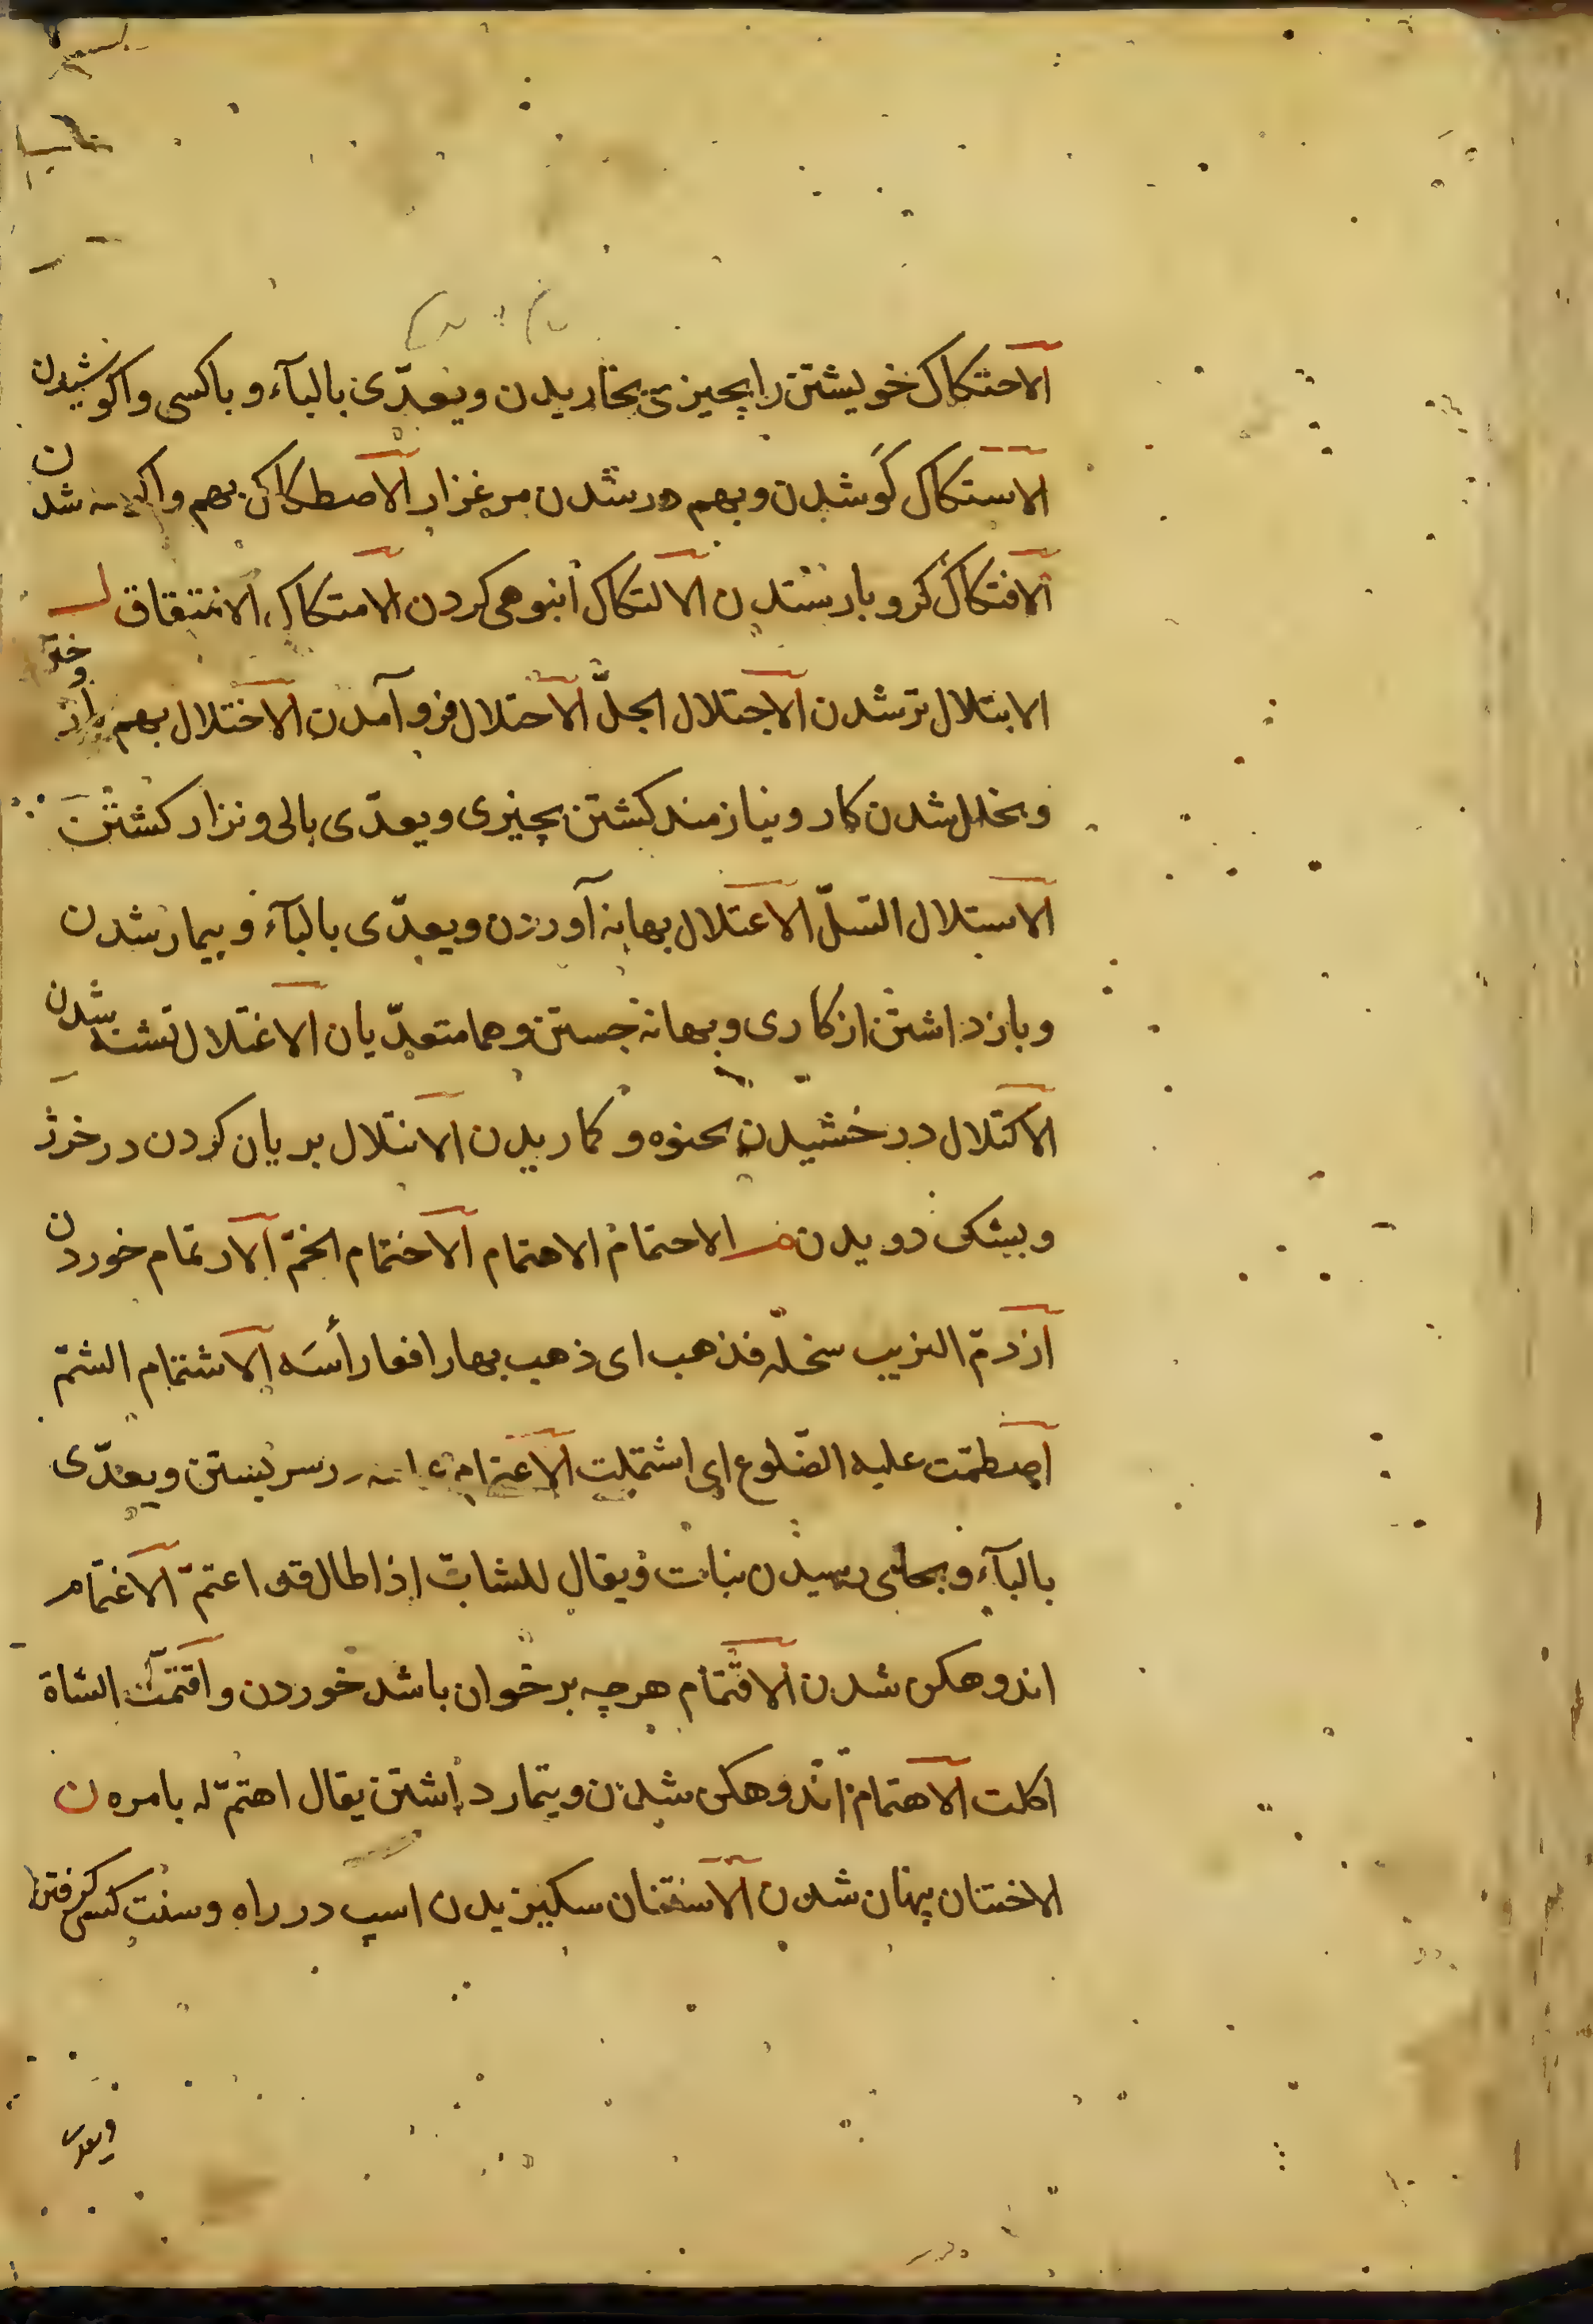 الاحتكاك خویشتن را بچیزی بخاریدن ویعدّی بالبآء و باکسی واکوشیدن
الاستكاك کر شدن و بهم در شدن مرغزار الاصطكاك بهم وا شدن
الافتكاك کرو بازستدن الالتكاك انبوهی کردن الامتكاك الامتقاق ل
الابتلال تر شدن الاجتلال الجلّ الاحتلال فرو آمدن الاختلال بهم وا
وبخلل شدن کار و نیازمند کشتن بچیزی ویعدّی بالی و نزار کشتن
الاستلال السّلّ الاعتلال بهانه آوردن ویعدّی بالبآء و بیمار شدن
و بازداشتن از کاری و بهانه جستن وهما متعدّیان الاغتلال تشنه شدن
الاكتلال درخشیدن بخنوه و کماریدن الانتلال بریان کردن در خرد
وبیشکی دویدن م الاحتمام الاهتمام الاختمام الخمّ الارتمام خوردن
ازدمّ الذیب سخلة فذهب ای ذهب بها رافعا رأسَه الاشتمام الشمّ
اصطمّت علیه الضّلوع ای اشتملت الاعتمام سر بستن ویعدّی
بالبآء و رسیدن نبات ویقال للشابّ اذا طال قد اعتمّ الاغتمام
اندوهکن شدن الاقتمام هرچه بر خوان باشد خوردن واقتمّت الشاة
اکلت الاهتمام اندوهکن شدن و تیمار داشتن یقال اهتمّ له بامره ن
الاختنان پنهان شدن الاستنان سکیزیدن اسب در راه و سنت کسی کرفتن
ویعدی